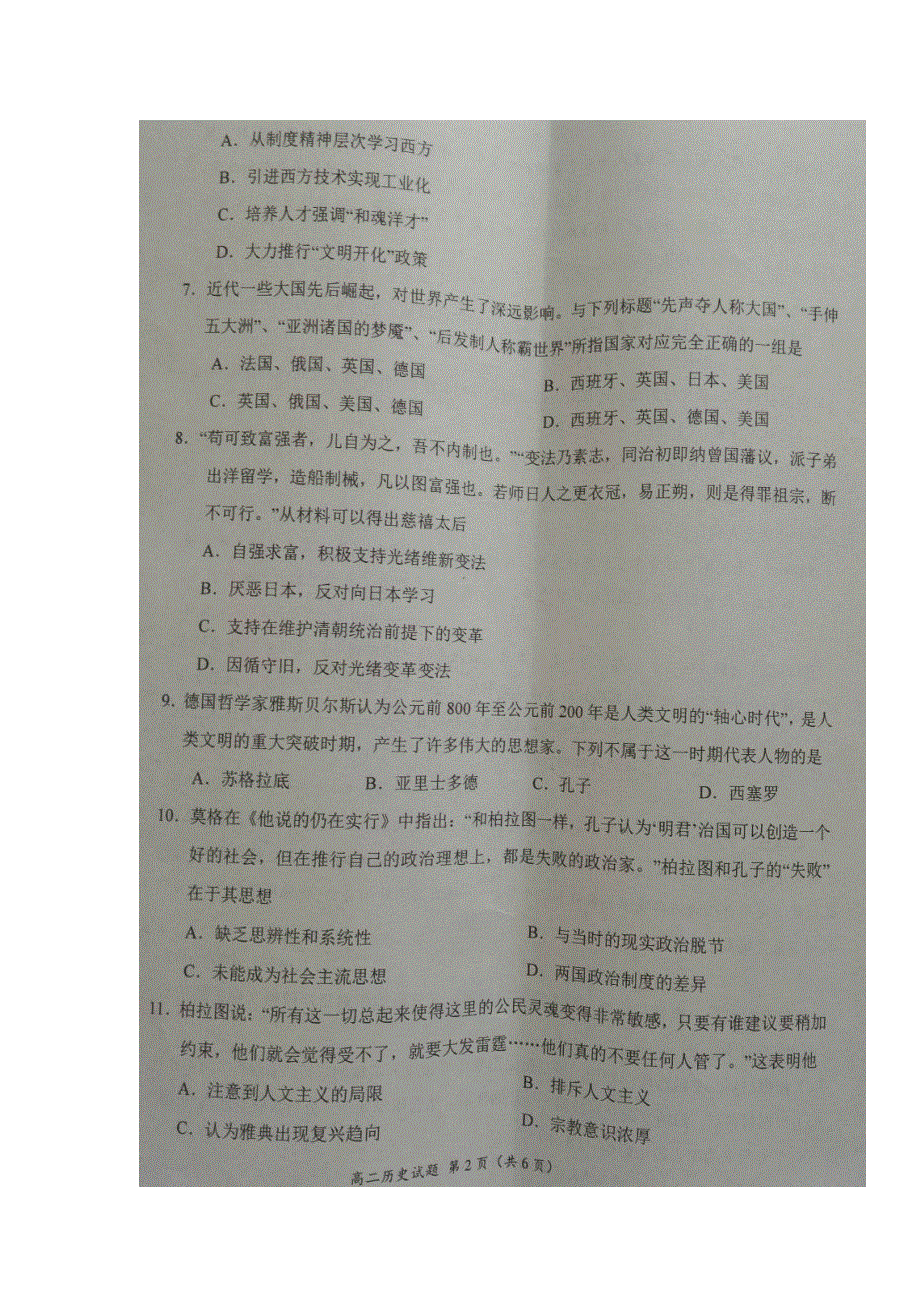 A．从制度精神层次学习西方
B．引进西方技术实现工业化
C．培养人才强调“和魂洋才”
D．大力推行“文明开化”政策
7．近代一些大国先后崛起，对世界产生了深远影响。与下列标题“先声夺人称大国”、“手伸
五大洲”、“亚洲诸国的梦魇”、“后发制人称霸世界”所指国家对应完全正确的一组是
A．法国、俄国、英国、德国 B．西班牙、英国、日本、美国
C．英国、俄国、美国、德国 D．西班牙、英国、德国、美国
8．“苟可致富强者，儿自为之，吾不内制也。”“变法乃素志，同治初即纳曾国藩议，派子弟
出洋留学，造船制械，凡以图富强也。若师日人之更衣冠，易正朔，则是得罪祖宗，断
不可行。”从材料可以得出慈禧太后
A．自强求富，积极支持光绪维新变法
B．厌恶日本，反对向日本学习
C．支持在维护清朝统治前提下的变革
D．因循守旧，反对光绪变革变法
9．德国哲学家雅斯贝尔斯认为公元前 800 年至公元前 200 年是人类文明的“轴心时代”，是人
类文明的重大突破时期，产生了许多伟大的思想家。下列不属于这一时期代表人物的是
A．苏格拉底 B．亚里士多德 C．孔子 D．西塞罗
10．莫格在《他说的仍在实行》中指出：“和柏拉图一样，孔子认为‘明君’治国可以创造一个
好的社会，但在推行自己的政治理想上，都是失败的政治家。”柏拉图和孔子的“失败”
在于其思想
A．缺乏思辨性和系统性 B．与当时的现实政治脱节
C．未能成为社会主流思想 D．两国政治制度的差异
11．柏拉图说：“所有这一切总起来使得这里的公民灵魂变得非常敏感，只要有谁建议要稍加
约束，他们就会觉得受不了，就要大发雷霆……他们真的不要任何人管了。”这表明他
A．注意到人文主义的局限 B．排斥人文主义
C．认为雅典出现复兴趋向 D．宗教意识浓厚
高二历史试题 第 2 页（共 6 页）